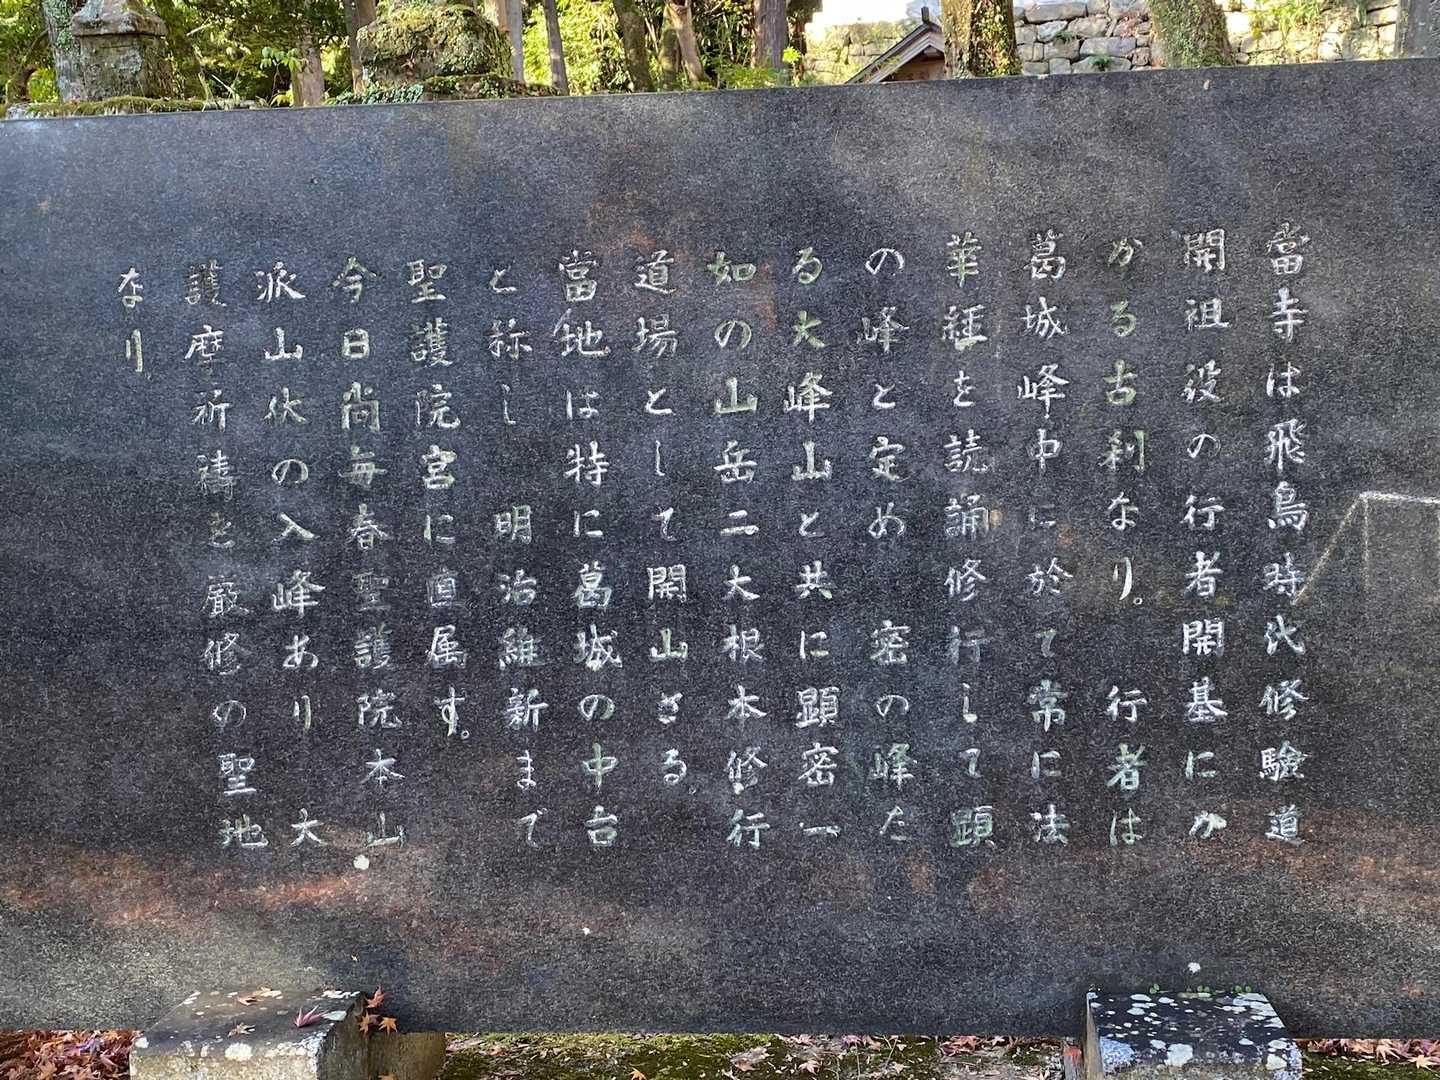 當寺は飛鳥時代修驗道
開祖役の行者開基にか
かる古刹なり。 行者は
葛城峰中に於て常に法
華経を読誦修行して顕
の峰と定め 密の峰た
る大峰山と共に顕密一
如の山岳二大根本修行
道場として開山さる
當地は特に葛城の中台
と称し 明治維新まで
聖護院宮に直属す。
今日尚毎春聖護院本山
派山伏の入峰あり 大
護摩祈祷を厳修の聖地
なり